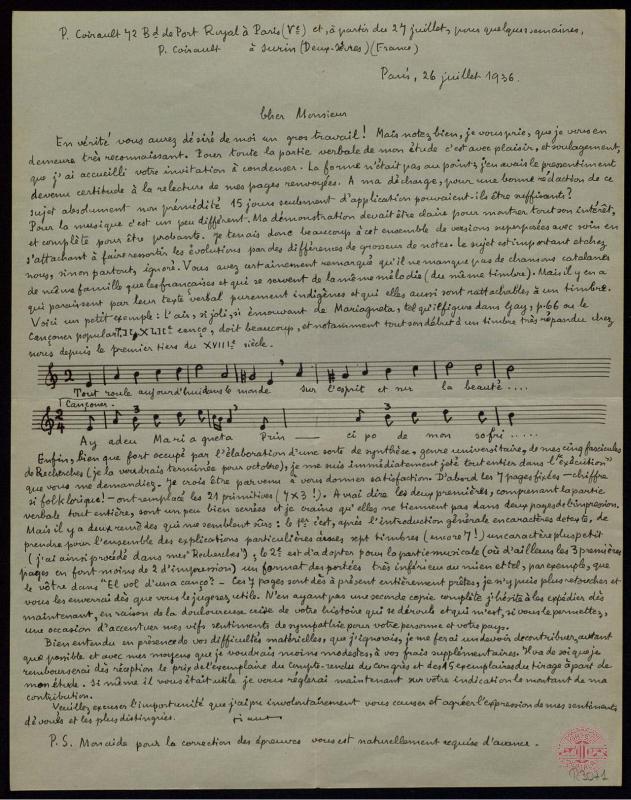 P. Coirault 72 Bd de Port Royal à Paris (Ve) et, à partir du 27 juillet, pour quelques semaines,
P. Coirault à Surin (Deux-Sèvres) (France)
Paris, 26 juillet 1936.
Cher Monsieur
En vérité vous aurez désiré de moi un gros travail ! Mais notez bien, je vous prie, que je vous en
demeure très reconnaissant. Pour toute la partie verbale de mon étude c'est avec plaisir, et soulagement,
que j'ai accueilli votre invitation à condenser. La forme n'était pas au point ; j'en avais le pressentiment
devenu certitude à la relecture de mes pages renvoyées. A ma décharge, pour une bonne rédaction de ce
sujet absolument non prémédité 15 jours seulement d'application pouvaient-ils être suffisants ?
Pour la musique c'est un peu différent. Ma démonstration devait être claire pour montrer tout son intérêt,
et complète pour être probante. Je tenais donc beaucoup à cet ensemble de versions superposées avec soin en
s'attachant à faire ressortir les évolutions par des différences de grosseur de notes. Le sujet est important et chez
nous, sinon partout, ignoré. Vous avez certainement remarqué qu'il ne manque pas de chansons catalanes
de même famille que les françaises et qui se servent de la même mélodie (du même timbre). Mais il y en a
qui paraissent par leur texte verbal purement indigènes et qui elles aussi sont rattachables à un timbre.
Voici un petit exemple : L'air, si joli, si émouvant de Mariagneta, tel qu'il figure dans Gay, p. 66 ou le
Cançoner popular, cenço, doit beaucoup, et notamment tout son début à un timbre très répandu chez
nous depuis le premier tiers du XVIIIe siècle.
Tout roule aujourd'hui dans le monde sur l'esprit et sur la beauté....
Cançoner.
Ay adeu Mariagneta Prin — ci po de mon sofri.....
Enfin, bien que fort occupé par l'élaboration d'une sorte de synthèse, genre universitaire, de mes cinq fascicules
de Recherches (je la voudrais terminée pour octobre), je me suis immédiatement jeté tout entier dans l'"exécution"
que vous me demandiez. Je crois être parvenu à vous donner satisfaction. D'abord les 7 pages fixées — chiffre
si folklorique ! — ont remplacé les 21 primitives (7 x 3 !). A vrai dire les deux premières, comprenant la partie
verbale tout entière, sont un peu bien serrées et je crains qu'elles ne tiennent pas dans deux pages d'impression.
Mais il y a deux remèdes qui me semblent sûrs : le 1er c'est, après l'introduction générale en caractères de texte, de
prendre pour l'ensemble des explications particulières aux sept timbres (encore 7 !) un caractère plus petit
(j'ai ainsi procédé dans mes "Recherches"), le 2e est d'adopter pour la partie musicale (où d'ailleurs les 3 premières
pages en font moins de 2 d'impression) un format des portées très inférieur au mien et tel, par exemple, que
le vôtre dans "El vol d'una cançó". — Ces 7 pages sont dès à présent entièrement prêtes, je n'y puis plus retoucher et
vous les enverrai dès que vous le jugerez utile. N'en ayant pas une seconde copie complète j'hésite à les expédier dès
maintenant, en raison de la douloureuse crise de votre histoire qui se déroule et qui m'est, si vous le permettez,
une occasion d'accentuer mes vifs sentiments de sympathie pour votre personne et votre pays.
Bien entendu en présence de vos difficultés matérielles, que j'ignorais, je me ferai un devoir de contribuer, autant
que possible et avec mes moyens que je voudrais moins modestes, à vos frais supplémentaires. Il va de soi que je
rembourserai dès réception le prix de l'exemplaire du Compte-rendu du Congrès et des 15 exemplaires du tirage à part de
mon étude. Si même il vous était utile je vous réglerai maintenant sur votre indication le montant de ma
contribution.
Veuillez excuser l'importunité que j'ai pu involontairement vous causer et agréer l'expression de mes sentiments
dévoués et les plus distingués.
P.S. Mon aide pour la correction des épreuves vous est naturellement acquise d'avance.